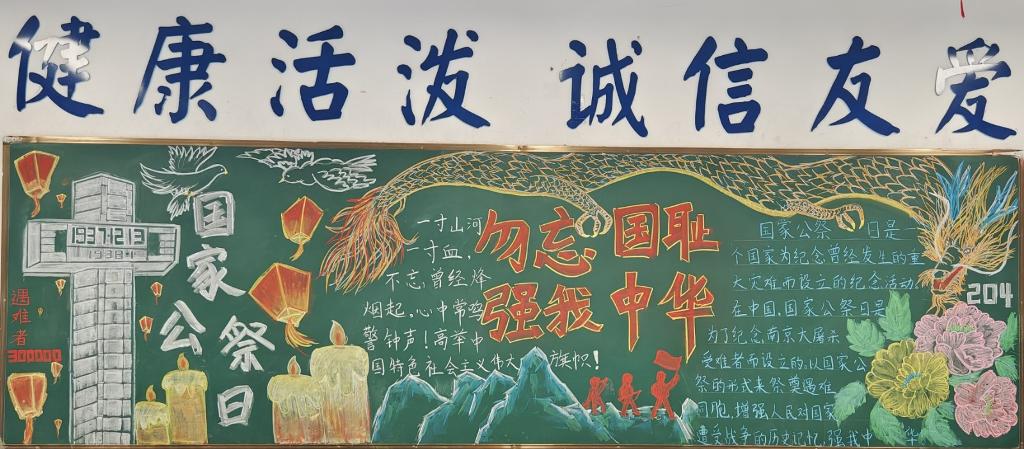 健康活泼 诚信友爱
1937.12.13
1938.1
遇难者
300000
国家公祭日
一寸山河
一寸血,
不忘曾经烽
烟起,心中常鸣
警钟声!高举中
国特色社会主义伟大 旗帜!
勿忘国耻
强我中华
国家公祭 日是一
个国家为纪念曾经发生的重
大灾难而设立的纪念活动.
在中国,国家公祭日是
为了纪念南京大屠杀
受难者而设立的,以国家公
祭的形式来祭奠遇难
同胞,增强人民对国家
遭受战争的历史记忆,强我中 华
204